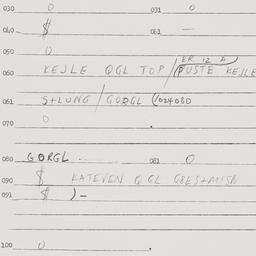 030 0 031 0
040 $ 041 —
050 0
ER 12 A
060 KEJLE QGL TOP / PUSTE KEJLE
061 S+LUNG / GORGL (024080
070 0
080 GORGL 081 0
090 $ KATEVEN QGL
091 $ ) -
100 0